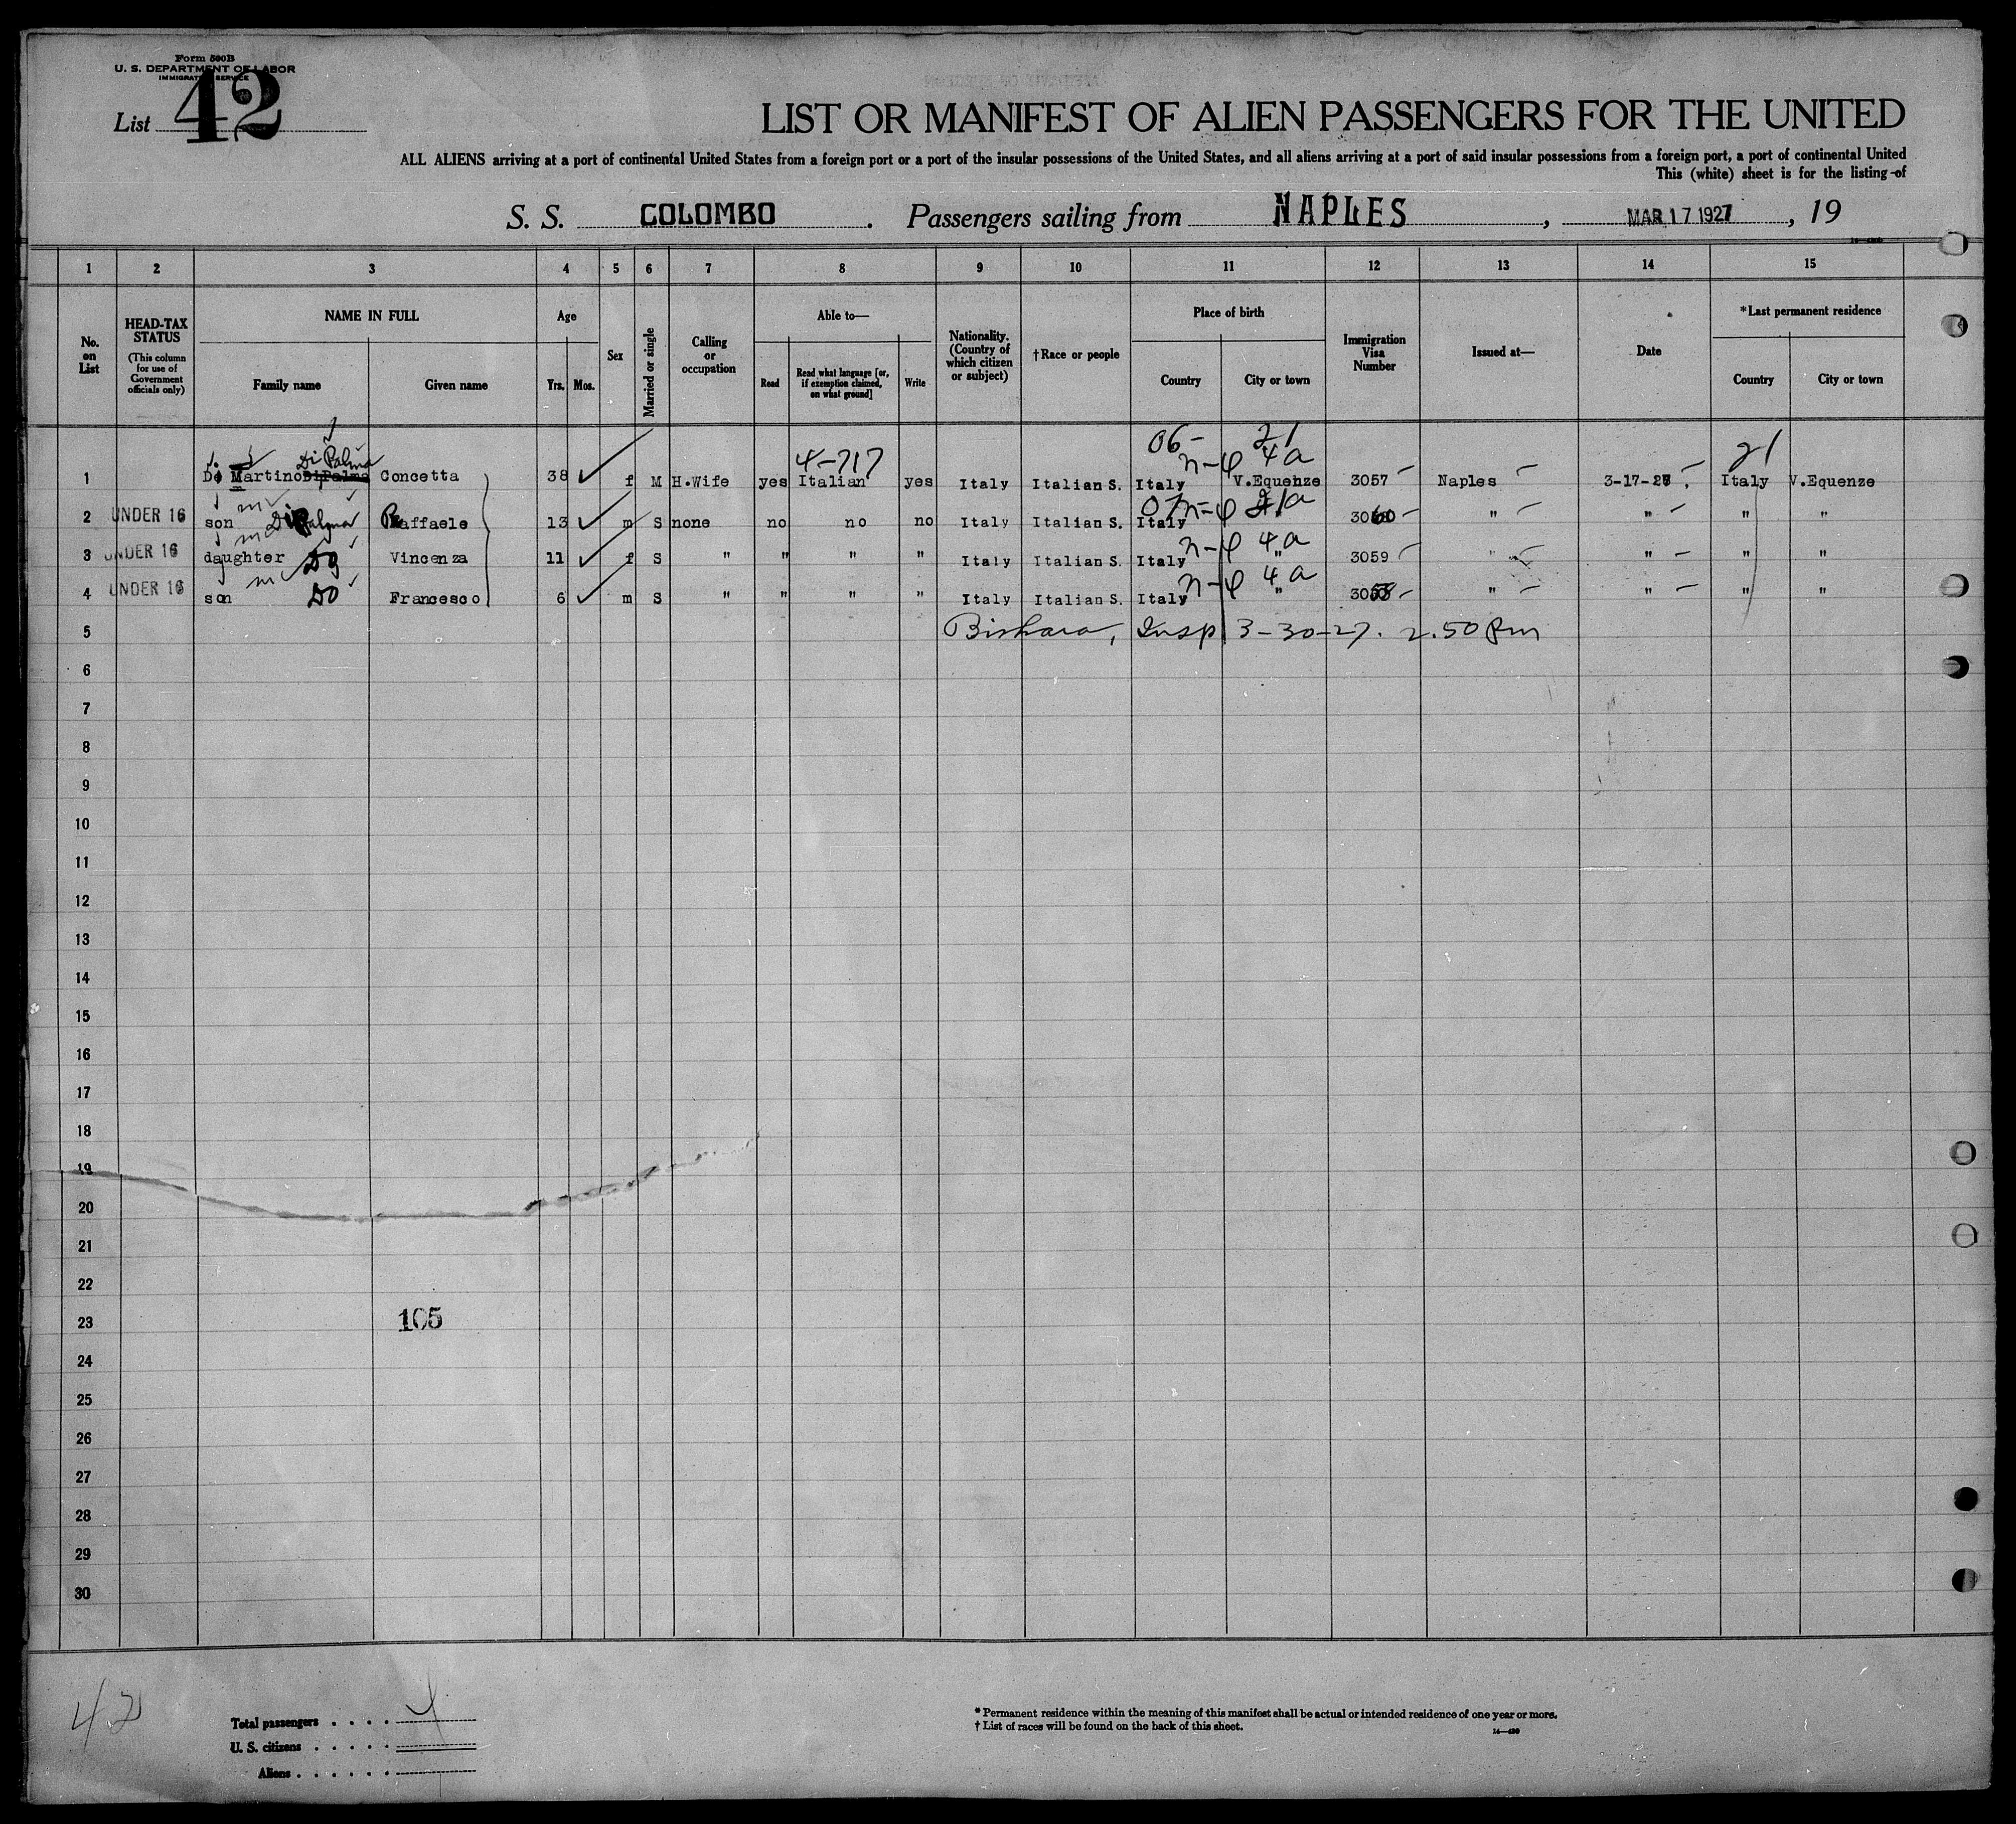 Form 500B
U. S. DEPARTMENT OF LABOR
IMMIGRATION SERVICE
List 42
LIST OR MANIFEST OF ALIEN PASSENGERS FOR THE UNITED
ALL ALIENS arriving at a port of continental United States from a foreign port or a port of the insular possessions of the United States, and all aliens arriving at a port of said insular possessions from a foreign port, a port of continental United
This (white) sheet is for the listing of
S. S. COLOMBO. Passengers sailing from NAPLES, MAR 17 1927, 19
1 2 3 4 5 6 7 8 9 10 11 12 13 14 15
No. on List
HEAD-TAX STATUS
(This column for use of Government officials only)
NAME IN FULL
Family name
Given name
Age
Yrs. Mos.
Sex
Married or single
Calling or occupation
Able to—
Read
Read what language [or, if exemption claimed, on what ground]
Write
Nationality. (Country of which citizen or subject)
†Race or people
Place of birth
Country
City or town
Immigration Visa Number
Issued at—
Date
*Last permanent residence
Country
City or town
Di Palma
4-717
06- 21
n-φ 4a
21
1 Martino Di Palma Concetta 38 f M H.Wife yes Italian yes Italy Italian S. Italy V.Equenze 3057 Naples 3-17-27. Italy V.Equenze
2 UNDER 16 son Di Palma Raffaele 13 m S none no no no Italy Italian S. Italy " 3060 " " " "
n-φ 4a
3 UNDER 16 daughter Do Vincenza 11 f S " " " " Italy Italian S. Italy " 3059 " " " "
n-φ 4a
4 UNDER 16 son Do Francesco 6 m S " " " " Italy Italian S. Italy " 3058 " " " "
5 Bishara, Insp 3-30-27. 2.50 Pm
6
7
8
9
10
11
12
13
14
15
16
17
18
19
20
21
22
23 105
24
25
26
27
28
29
30
42
Total passengers . . . . 4
U. S. citizens . . . . .
Aliens . . . . . .
* Permanent residence within the meaning of this manifest shall be actual or intended residence of one year or more.
† List of races will be found on the back of this sheet.